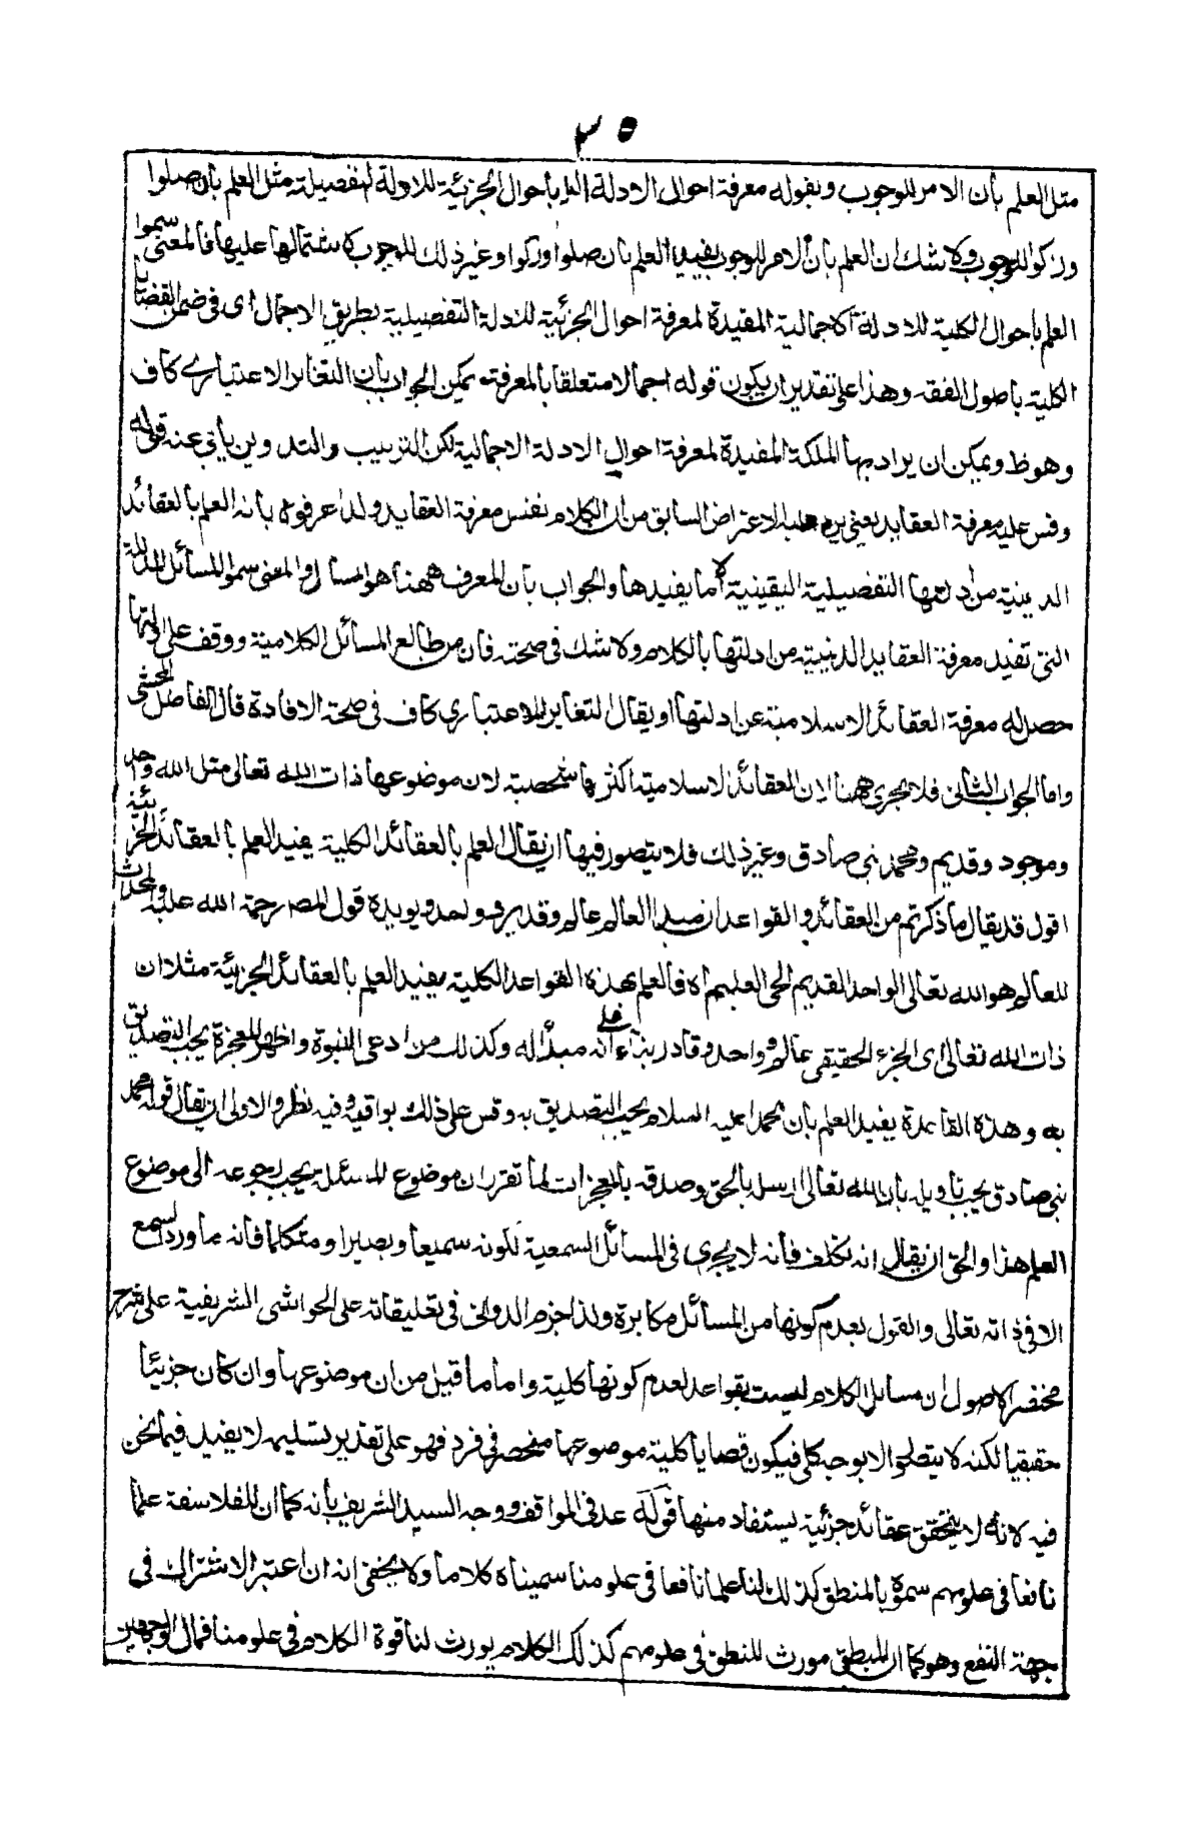 ٣٥
مثل العلم بأن الامر للوجوب وبقوله معرفة احوال الادلة العلم بأحوال الجزئية للادلة التفصيلية مثل العلم بأن صلوا
وزكوا للوجوب ولا شك ان العلم بأن الامر للوجوب يفيد العلم بأن صلوا وزكوا وغير ذلك للوجوب لاشتمالها عليها فالمعنى سموا
العلم باحوال الكلية للادلة الاجمالية المفيدة لمعرفة احوال الجزئية للادلة التفصيلية بطريق الاجمال اى فى ضمن القضايا
الكلية باصول الفقه وهذا على تقدير ان يكون قوله اجمالا متعلقا بالمعرفة يمكن الجواب بان التغاير الاعتبارى كاف
وهو ظ ويمكن ان يراد بها الملكة المفيدة لمعرفة احوال الادلة الاجمالية لكن الترتيب والتدوين يأبى عنه قوله
وقس عليه معرفة العقايد يعنى يرد عليه الاعتراض السابق من ان الكلام نفس معرفة العقايد ولذا عرفوه بأنه العلم بالعقائد
الدينية من ادلتها التفصيلية اليقينية لا ما يفيدها والجواب بأن المعرف ههنا هو المسائل والمعنى سموا المسائل المدللة
التى تفيد معرفة العقايد الدينية من ادلتها بالكلام ولا شك فى صحته فان من طالع المسائل الكلامية ووقف على ادلتها
حصل له معرفة العقائد الاسلامية عن ادلتها او يقال التغاير الاعتبارى كاف فى صحة الافادة قال الفاضل المحشى
واما الجواب الثانى فلا يجرى ههنا لان العقائد الاسلامية اكثرها شخصية لان موضوعها ذات الله تعالى مثل الله واحد
وموجود وقديم ومحمد نبى صادق وغير ذلك فلا يتصور فيها ان يقال العلم بالعقائد الكلية يفيد العلم بالعقائد الجزئية
اقول قد يقال ما ذكرتم من العقائد والقواعد ان مبدأ العالم عالم وقدير وواحد ويويده قول المصر رحمة الله عليه والمحدث
للعالم هو الله تعالى الواحد القديم الحى العليم اه فالعلم بهذه القواعد الكلية يفيد العلم بالعقائد الجزئية مثلا ان
ذات الله تعالى اى الجزء الحقيقى عالم وواحد وقادر بناء على انه مبدأ له وكذلك من ادعى النبوة واظهر المعجزة يجب التصديق
به وهذه القاعدة يفيد العلم بأن محمدا عليه السلام يجب التصديق به وقس على ذلك بواقيه وفيه نظر والاولى ان يقال قوله محمد
نبى صادق يجب تأويله بأن الله تعالى ارسله بالحق وصدقه بالمعجزات لما تقرر ان موضوع المسئلة يجب رجوعه الى موضوع
العلم هذا والحق ان يقال انه تكلف فأنه لا يجرى فى المسائل السمعية لكونه سميعا وبصيرا ومتكلما فانه ما ورد السمع
الا فى ذاته تعالى والقول بعدم كونها من المسائل مكابرة ولذا جزم الدوانى فى تعليقاته على الحواشى الشريفية على شرح
مختصر الاصول ان مسائل الكلام ليست بقواعد لعدم كونها كلية واما ما قيل من ان موضوعها وان كان جزئيا
حقيقيا لكنه لا يتصور الا بوجه كلى فيكون قضايا كلية موضوعها منحصر فى فرد فهو على تقدير تسليمه لا يفيد فيما نحن
فيه لانه لا يتحقق عقائد جزئية يستفاد منها قوله عد فى المواقف ووجه السيد الشريف بأنه كما ان للفلاسفة علما
نافعا فى علومهم سموه بالمنطق كذلك لنا علما نافعا فى علومنا سميناه كلاما ولا يخفى انه ان اعتبر الاشتراك فى
جهة النفع وهو كما ان المنطق مورث للنطق فى علومهم كذلك الكلام يورث لنا قوة الكلام فى علومنا فمآل الوجهين